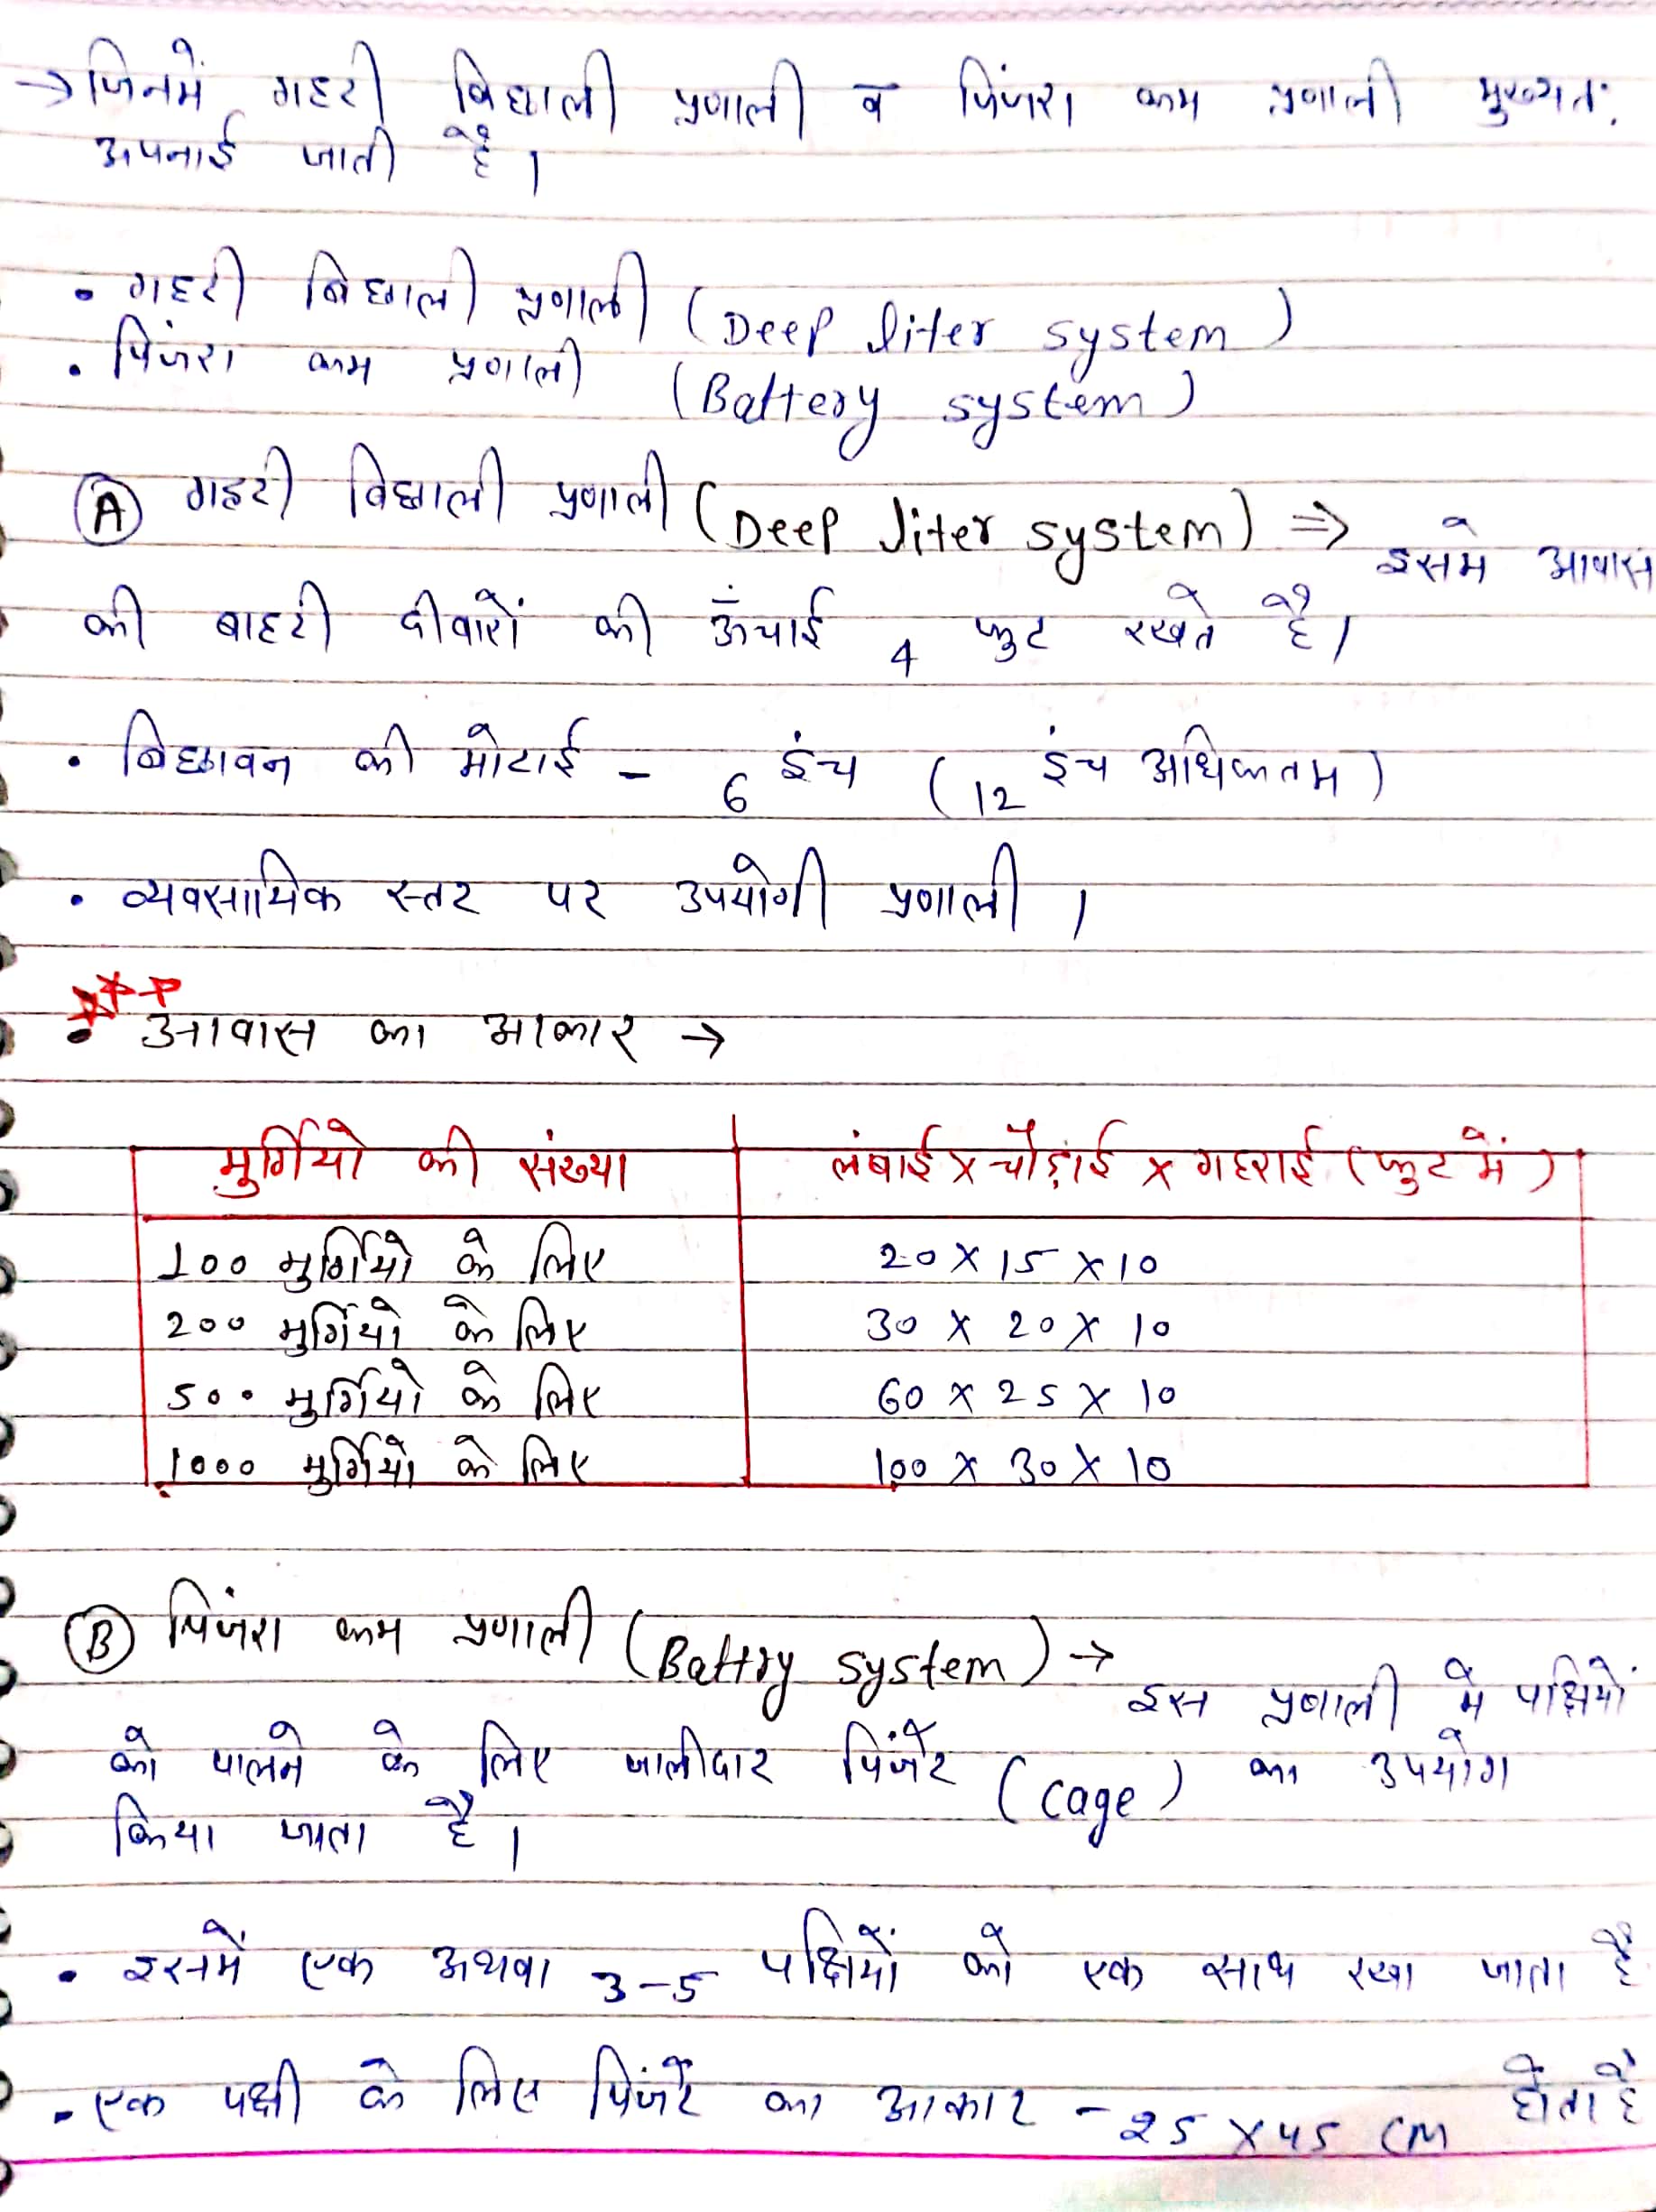 → जिनमे गहरी बिछाली प्रणाली व पिंजरा कम प्रणाली मुख्यत:
अपनाई जाती है।
• गहरी बिछाली प्रणाली (Deep liter system)
• पिंजरा कम प्रणाली (Battery system)
Ⓐ गहरी बिछाली प्रणाली (Deep liter system) ⇒ इसमे आवास
की बाहरी दीवारों की ऊँचाई 4 फुट रखते है।
• बिछावन की मोटाई - 6 इंच (12 इंच अधिकतम)
• व्यवसायिक स्तर पर उपयोगी प्रणाली।
• आवास का आकार →
मुर्गियो की संख्या लंबाई x चौड़ाई x गहराई (फुट में)
100 मुर्गियो के लिए 20 x 15 x 10
200 मुर्गियो के लिए 30 x 20 x 10
500 मुर्गियो के लिए 60 x 25 x 10
1000 मुर्गियो के लिए 100 x 30 x 10
Ⓑ पिंजरा कम प्रणाली (Battry system) → इस प्रणाली मे पक्षियों
को पालने के लिए जालीदार पिंजरे (cage) का उपयोग
किया जाता है।
• इसमें एक अथवा 3-5 पक्षियों को एक साथ रखा जाता है
- एक पक्षी के लिए पिंजरे का आकार - 25 x 45 CM होता है